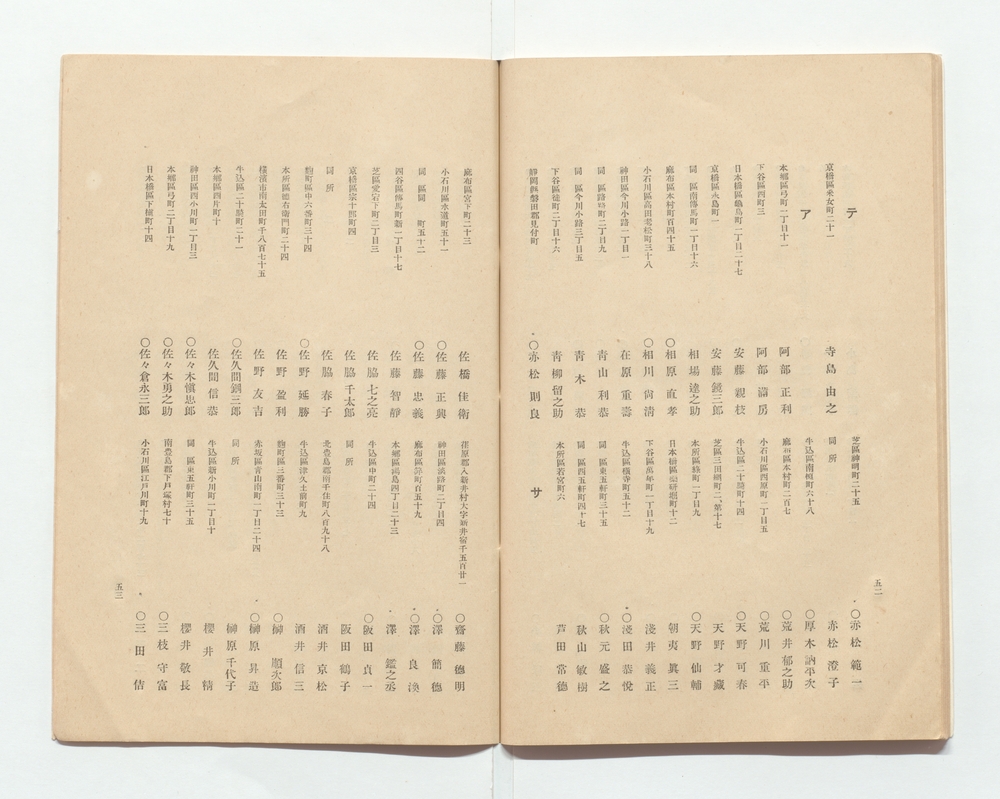 テ
京橋區釆女町二十一　寺島由之
ア
本鄕區弓町一丁目十一　阿部正利
下谷區西町三　阿部謙房
日本橋區蠣島町一丁目二十七　安藤親枝
京橋區永島町一　安藤鏡三郎
同區南傳馬町一丁目十六　相場達之助
麻布區本村町百四十五　○相原直孝
小石川區高田老松町三十八　○相川尙淸
神田區今川小路二丁目一　在原重壽
同區今川小路三丁目五　靑山利恭
同區猿樂町二丁目九　靑木恭
下谷區徒町二丁目十六　靑柳留之助
靜岡縣磐田郡見付町　○赤松則良
芝區神明町二十五　○赤松範一
同所　赤松澄子
牛込區南榎町六十八　○厚木訥平次
麻布區本村町二百七　○荒井郁之助
小石川區西原町一丁目五　○荒川重平
牛込區二十騎町十四　○天野可春
芝區三田綱町二、第十七　天野才藏
本所區綠町一丁目九　○天野仙輔
日本橋區藥硏堀町十二　朝夷眞三
下谷區萬年町一丁目十九　淺井義正
牛込區橫寺町五十二　○淺田恭悅
同區東五軒町三十五　○秋元盛之
同區西五軒町四十七　秋山敏樹
本所區若宮町六　芦田常德
サ
五二
麻布區宮下町二十三　佐橋佳衛
小石川區水道町五十一　○佐藤正興
同區同町五十二　○佐藤忠義
四谷區傳馬町新一丁目十七　佐藤智靜
芝區愛宕下町二丁目三　佐脇七之亮
京橋區宗十郎町四　佐脇千太郎
同所　佐脇春子
麴町區中六番町三十四　○佐野延勝
本所區德右衞門町二十四　佐野盈利
橫濱市南太田町千八百七十五　佐野友吉
牛込區二十騎町二十一　○佐久間鋼三郎
本鄕區西片町十　佐久間信恭
神田區西小川町一丁目三　○佐々木愼思郎
本鄕區弓町二丁目十九　○佐々木勇之助
日本橋區下槇町十四　○佐々倉永三郎
荏原郡入新井村大字新井宿千五百廿一　○齋藤德明
神田區淡路町二丁目四　○澤簡德
麻布區町百五十九　○澤良渙
本鄕區湯島四丁目二十三　澤鑑之丞
牛込區中町二十四　○阪田貞一
同所　阪田鶴子
北豊島郡南千住町八百九十八　酒井京松
牛込區津久土前町九　酒井信三
麴町區三番町三十三　○榊順次郎
赤坂區靑山南町一丁目二十四　○榊原昇造
同所　榊原千代子
牛込區新小川町一丁目十　櫻井精
同區東五軒町三十五　櫻井敬長
南豊島郡下戶塚村七十　○三枝守富
小石川區江戶川町十九　○三田佶
五三